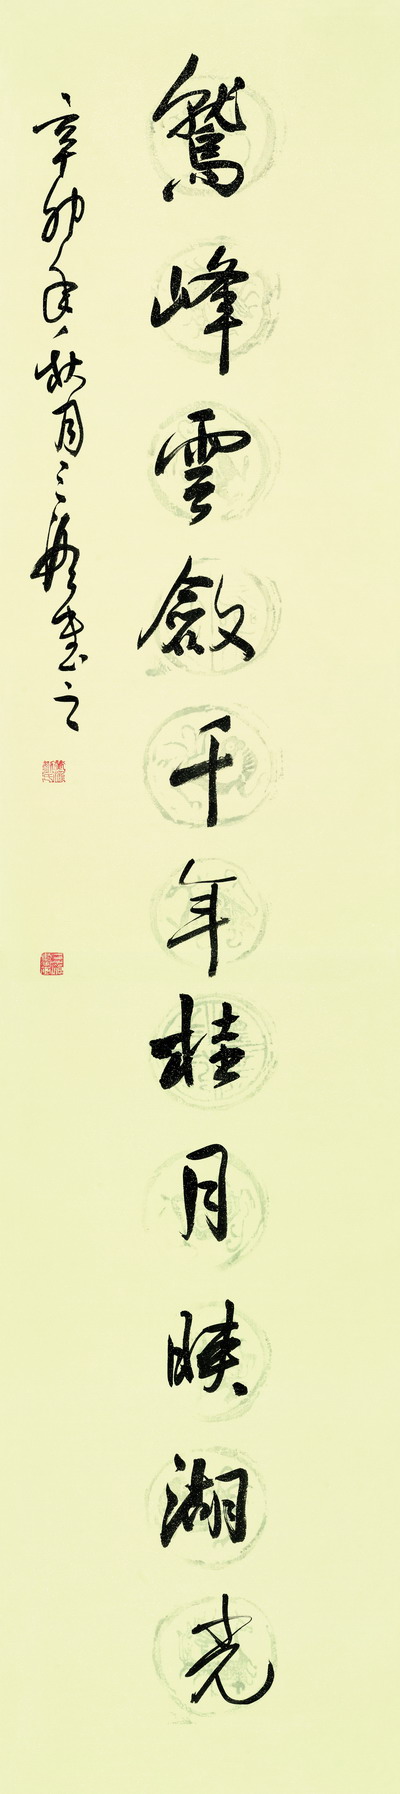 鷲峰雲斂千年桂月映湖光
辛卯年秋月三願書之